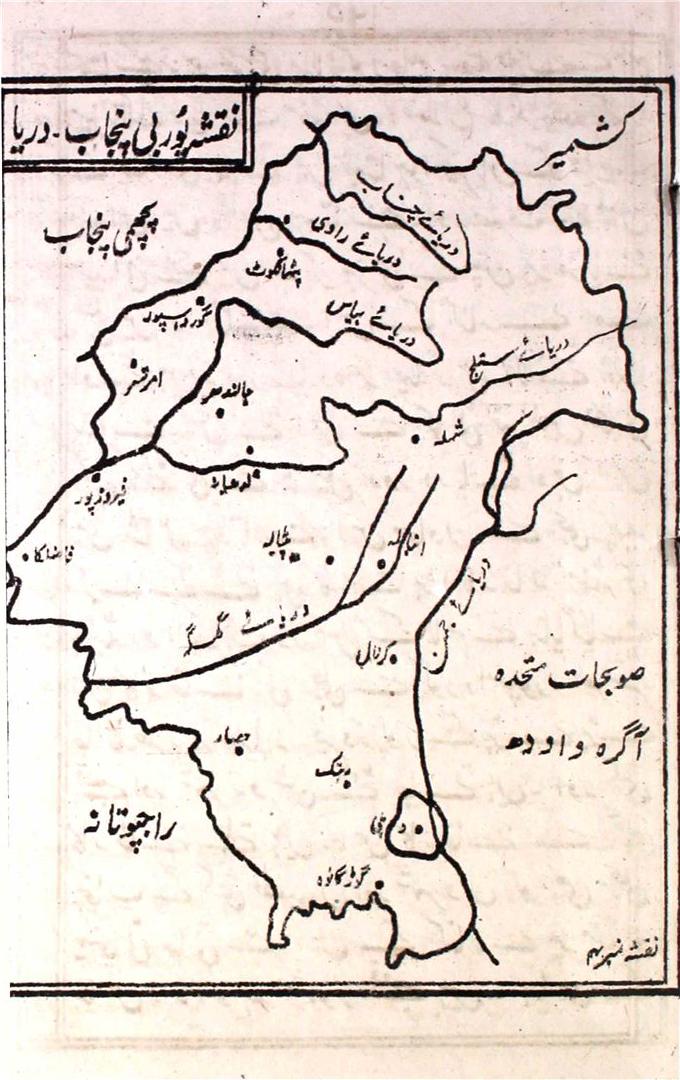 نقشہ پُوربی پنجاب - دریا
کشمیر
پچھمی پنجاب
دریائے چناب
دریائے راوی
پٹھانکوٹ
گورداسپور
دریائے بیاس
دریائے ستلج
امرتسر
جالندھر
شملہ
لدھیانہ
فیروزپور
فاضلکا
پٹیالہ
انبالہ
دریائے گھگر
دریائے جمن
کرنال
صوبجات متحدہ
آگرہ و اودھ
حصار
رہتک
راجپوتانہ
دہلی
گوڑگانوہ
نقشہ نمبر ۴